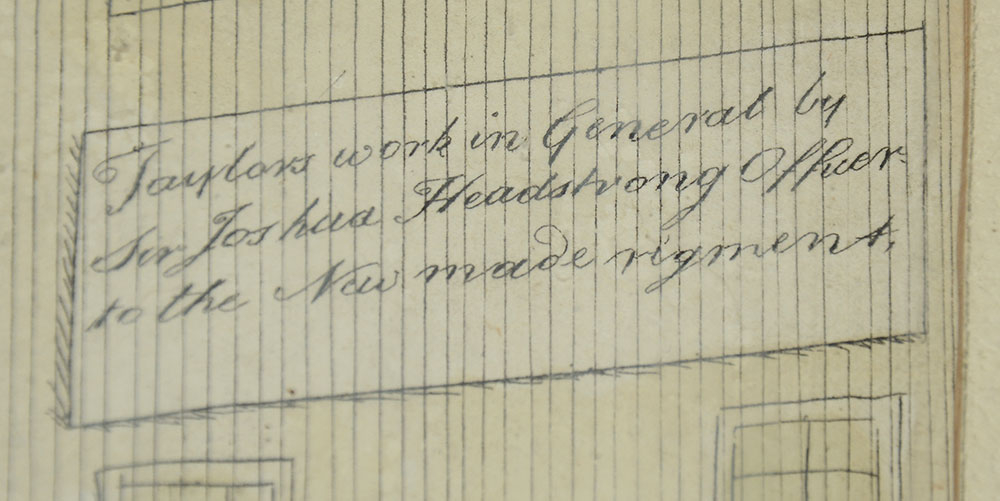 Taylors work in General by
Sir Joshua Headstrong Officer
to the New made rigment.